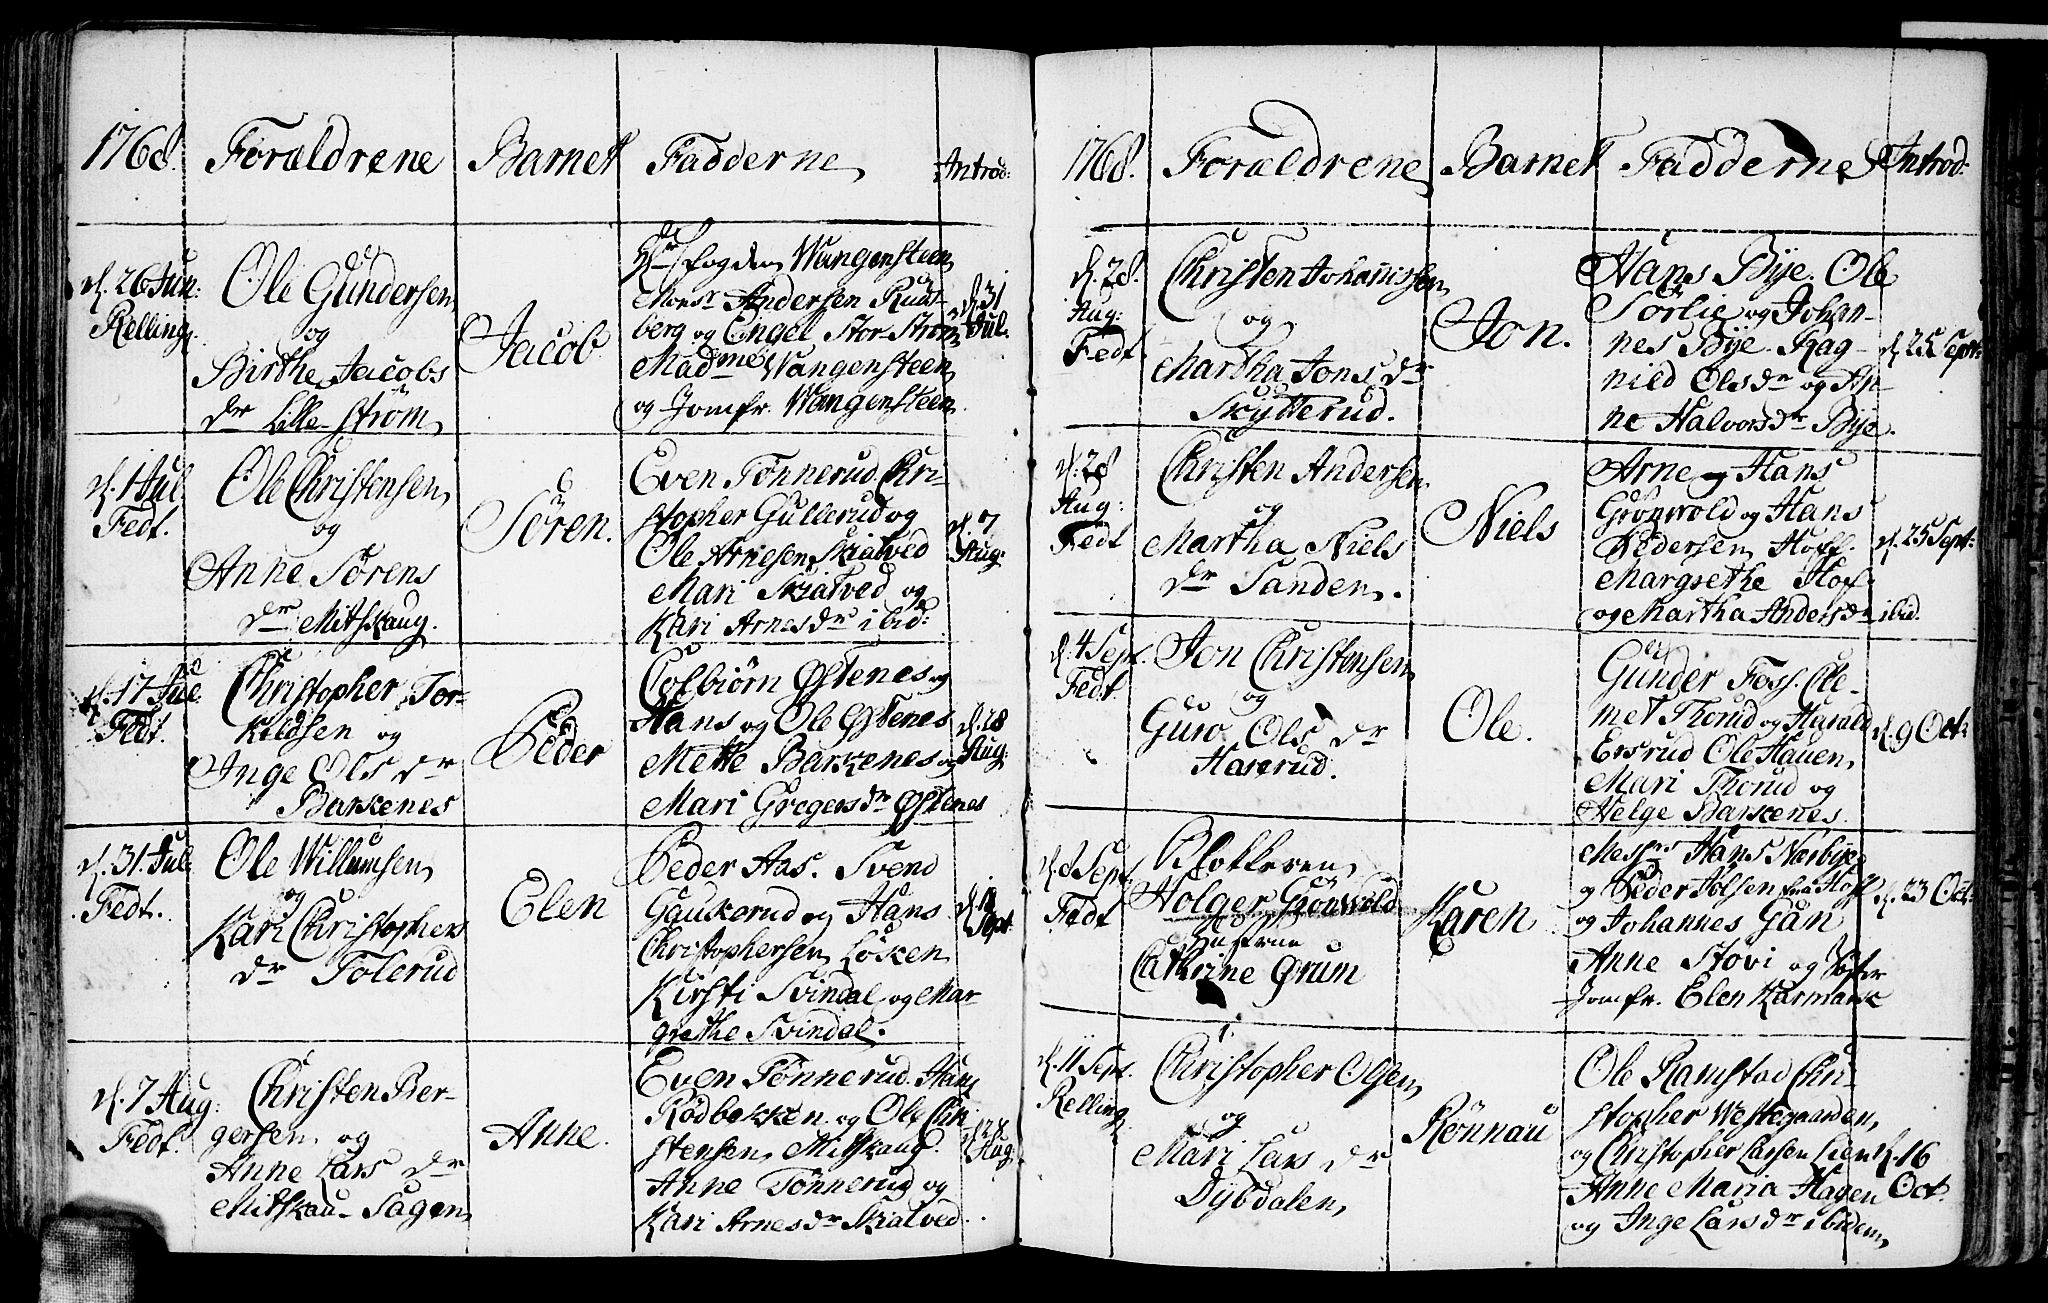 1768. Forældrene Barnet Fadderne Introd:
d. 26 Jun:
Relling.
Ole Gundersen
og
Birthe Jacobs
dr Lille-strøm
Jacob
Hr fogden Wangensteen
Monsr Andersen Ruds-
berg og Engel Stor-Strøm
Madme Wangensteen
og Jomfr. Wangensteen
d. 31
Jul.
d. 1 Jul.
Fedt.
Ole Christensen
og
Anne Sørens
dr Mitskaug.
Søren.
Even Tønnerud. Chri-
stopher Gullerud og
Ole Arnesen Skiatved
Mari Skiatved og
Kari Arnesdr ibid:
d. 7
Aug:
d. 17 Jul.
Fedt.
Christopher Tor-
kildsen og
Inge Ols dr
Barkenes
Peder
Colbiørn Østenes og
Hans og Ole Østenes
Mette Barkenes og
Mari Gregersdr Østenes
d. 28
Aug:
d. 31. Jul.
Fedt.
Ole Willumsen
og
Kari Christophers
dr Tolerud
Elen
Peder Aas. Svend
Gaukerud og Hans
Christophersen Løken
Kirsti Svindal og Mar-
grethe Svindal.
Sept
d. 7 Aug:
Fedt.
Christen Ber-
gersen og
Anne Lars dr
Mitskau-Sagen
Anne.
Even Tønnerud. Hans
Rødbekken og Ole Chri
stensen Mitskaug.
Anne Tønnerud og
Kari Arnesdr Skiatved.
d. 28
Aug:
1768. Forældrene Barnet Fadderne Introd:
d. 28.
Aug:
Fedt.
Christen Johannessen
og
Martha Jons dr
Skytterud.
Jon.
Hans Bye. Ole
Sørlie og Johan-
nes Bye. Rag-
nild Olsdr og An-
ne Halvorsdr Bye.
d. 25 Sept:
d. 28
Aug:
Fedt
Christen Andersen
og
Martha Niels
dr Sanden.
Niels
Arne og Hans
Grønvold og Hans
Pedersen Hoff.
Margrethe Hof
og Martha Andersdr ibid.
d. 25 Sept:
d. 4 Sept.
Fedt.
Jon Christensen
og
Guro Ols dr
Haserud.
Ole.
Gunder Foss. Cle-
met Thorud og Harald
Ersrud Ole Hauen
Mari Thorud og
Helge Barkenes.
d. 9 Oct:
d. 8 Sept.
Fedt
Klokkeren
Holger Grønvold
Hustrue
Cathrine Grum
Karen
Messrs Hans Nærbye
og Peder Jølsen fra Hof
og Johannes Gan
Anne Støvi og Søster
Jomfr. Elen Karmark
d. 23 Oct:
d. 11 Sept.
Relling.
Christopher Olsen
og
Mari Lars dr
Dybdalen
Rønnau
Ole Ramstad Chri-
stopher Westegaarden
og Christopher Larsen Lien
Anne Maria Hagen
og Inge Larsdr ibidem
d. 16
Oct.